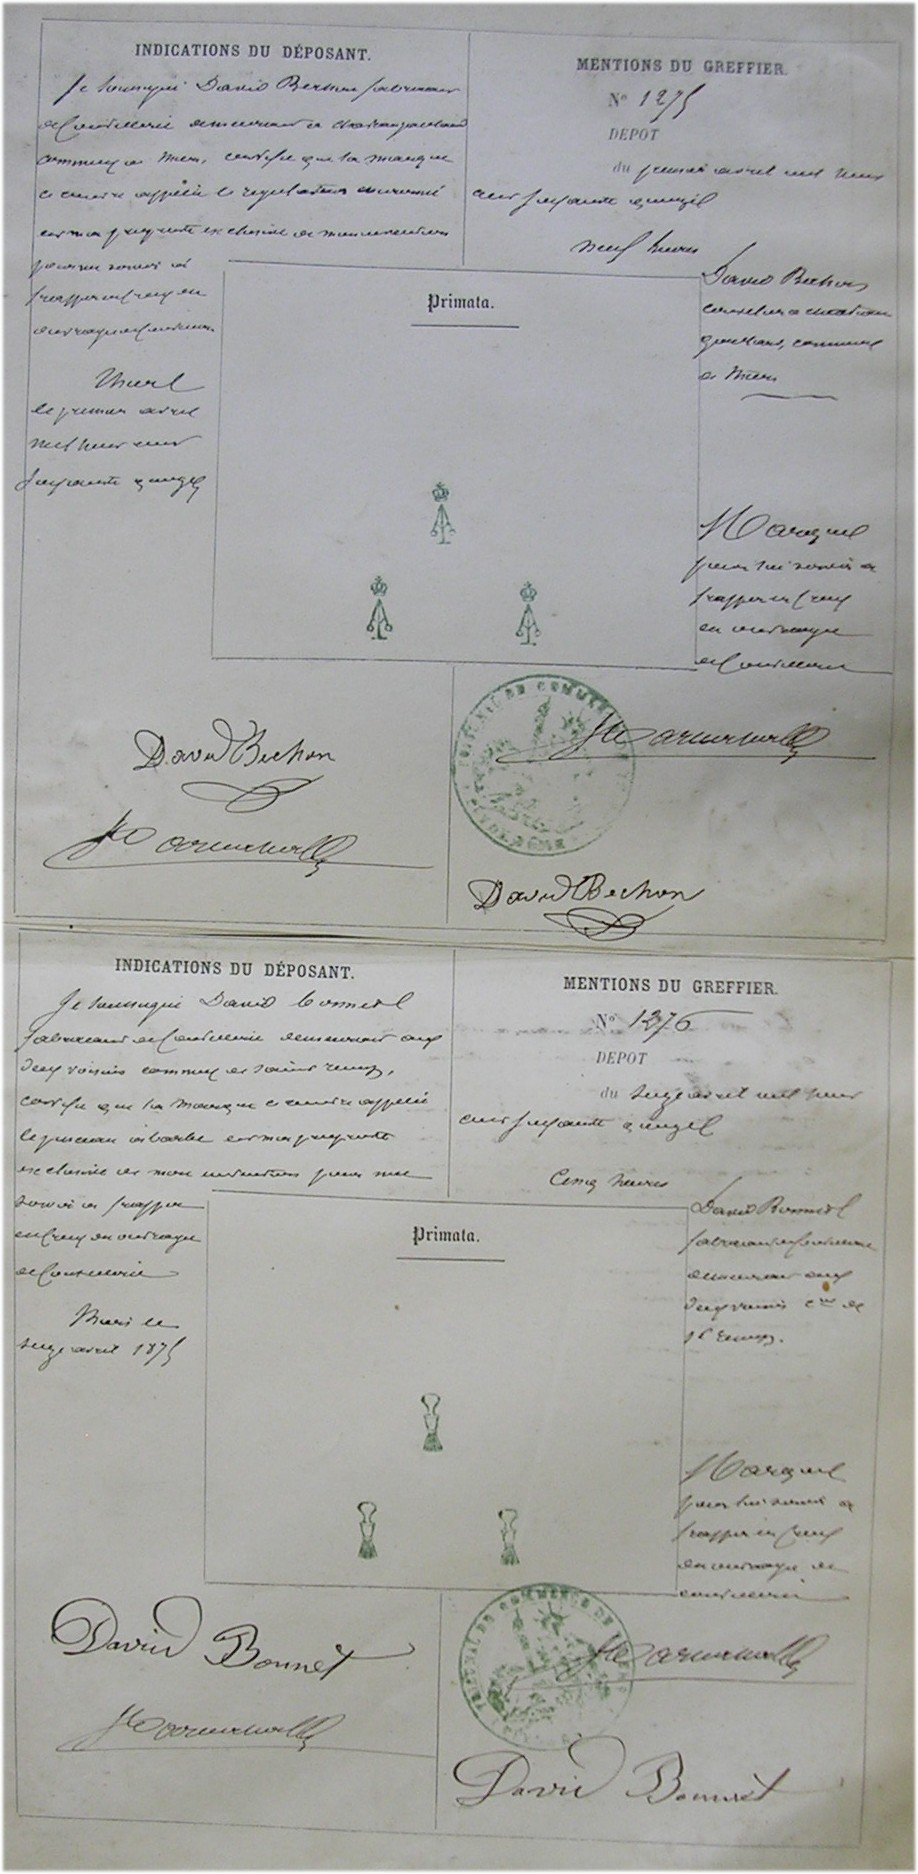 INDICATIONS DU DÉPOSANT.
Je soussigné David Bechon fabricant
de Coutellerie demeurant à
commune de Thiers, certifie que la marque
ci contre appelée le régulateur couronné
est ma propriété exclusive de mon invention
pour me servir à
frapper en creux en
ouvrage de Coutellerie
Thiers le
le premier avril
mil huit cent
soixante quinze
MENTIONS DU GREFFIER.
N° 1275
DEPOT
du premier avril mil huit
cent soixante quinze
neuf heures
Primata.
David Bechon
coutelier à
commune
de Thiers
Marque
pour lui servir à
frapper en creux
en ouvrage
de Coutellerie
David Bechon
TRIBUNAL DE COMMERCE
David Bechon
INDICATIONS DU DÉPOSANT.
Je soussigné David Bonnet
fabricant de Coutellerie demeurant aux
commune de Saint Remy,
certifie que la marque ci contre appelée
le pinceau à barbe est ma propriété
exclusive de mon invention pour me
servir à frapper
en creux en ouvrage
de Coutellerie
Thiers le
seize avril 1875
MENTIONS DU GREFFIER.
N° 1276
DEPOT
du seize avril mil huit
cent soixante quinze
Cinq heures
Primata.
David Bonnet
fabricant de Coutellerie
demeurant aux
cne de
St Remy.
Marque
pour lui servir à
frapper en creux
en ouvrage de
coutellerie
David Bonnet
TRIBUNAL DE COMMERCE DE
David Bonnet